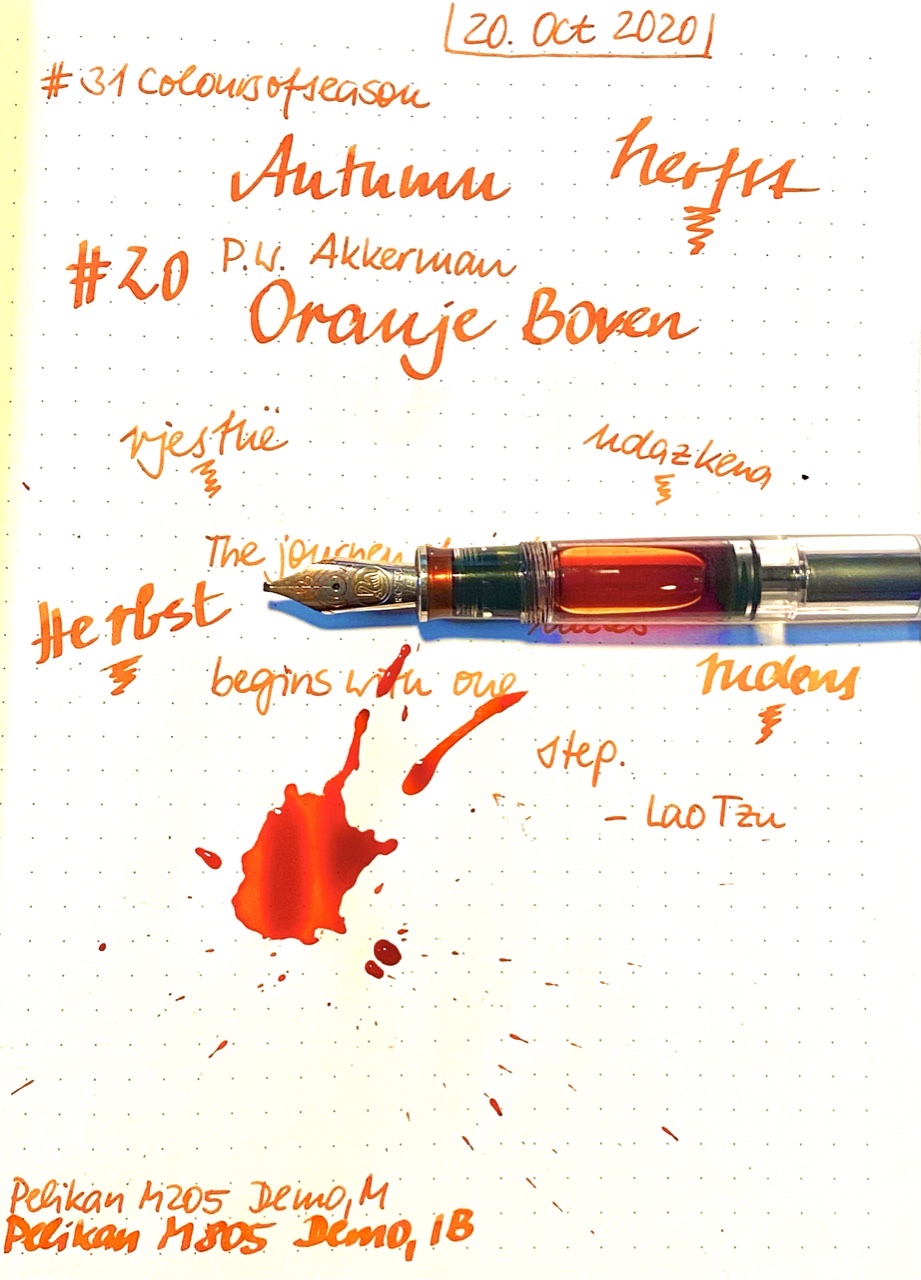 20. Oct 2020
#31 Coloursofseason
Autumn
herfst
#20
P.W. Akkerman
Oranje Boven
vjeshtë
udazkena
The journey
miles
Herbst
begins with one
rudens
step.
- Lao Tzu
Pelikan M205 Demo, M
Pelikan M805 Demo, IB